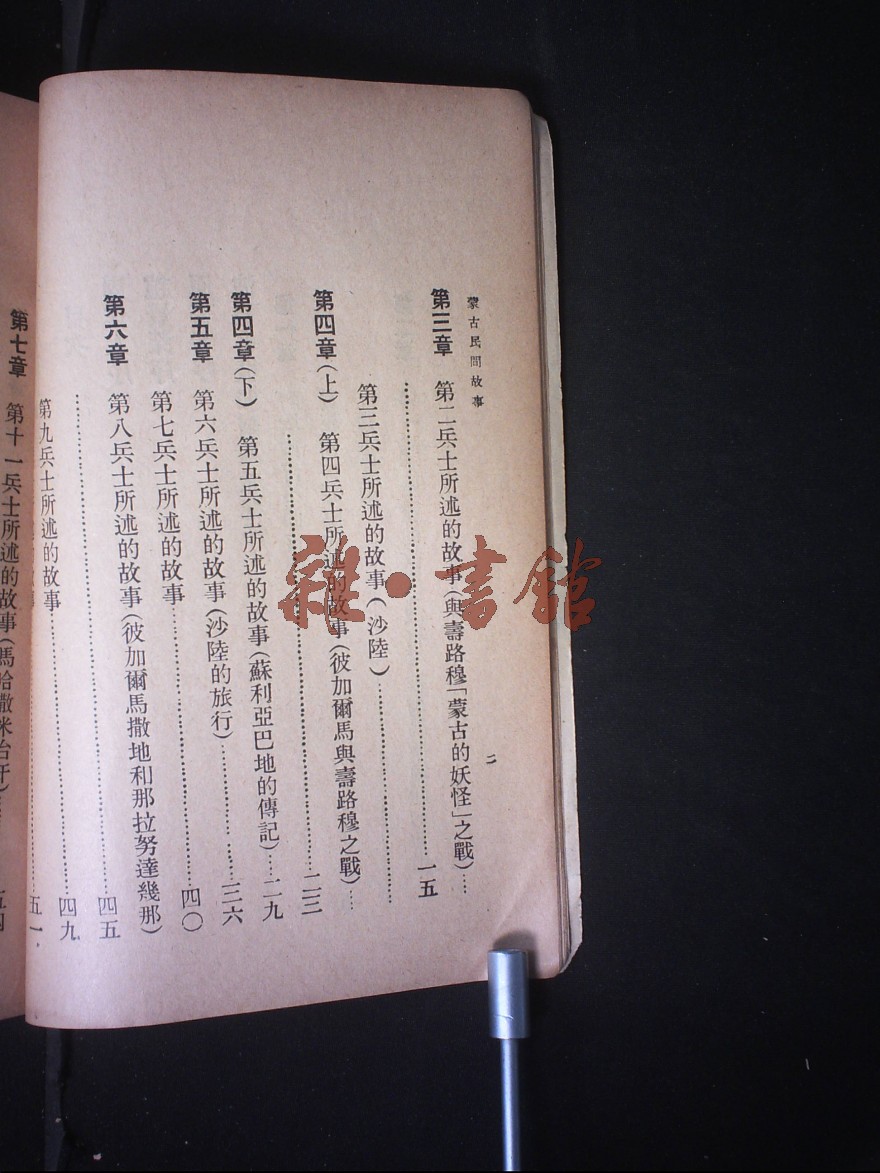 蒙古民間故事
二
第三章　第二兵士所述的故事(與壽路穆「蒙古的妖怪」之戰)……
……一五
第三兵士所述的故事(沙陸)……
第四章(上)　第四兵士所述的故事(彼加爾馬與壽路穆之戰)……
……二三
第四章(下)　第五兵士所述的故事(蘇利亞巴地的傳記)……二九
第五章　第六兵士所述的故事(沙陸的旅行)……三六
第七兵士所述的故事……四〇
第六章　第八兵士所述的故事(彼加爾馬撒地利那拉努達幾那)
……四五
第九兵士所述的故事……四九
的故事……五一
第七章　第十一兵士所述的故事(馬哈撒米台汗)……
雜·書館